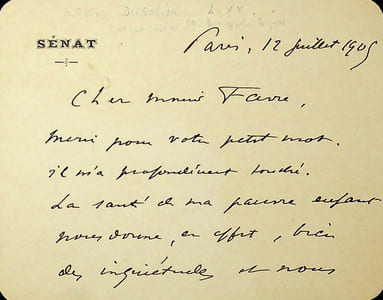 SÉNAT
Paris, 12 juillet 1905
Cher monsieur Favre,
Merci pour votre petit mot.
il m'a profondément touché.
La santé de ma pauvre enfant
nous donne, en effet, bien
des inquiétudes et nous